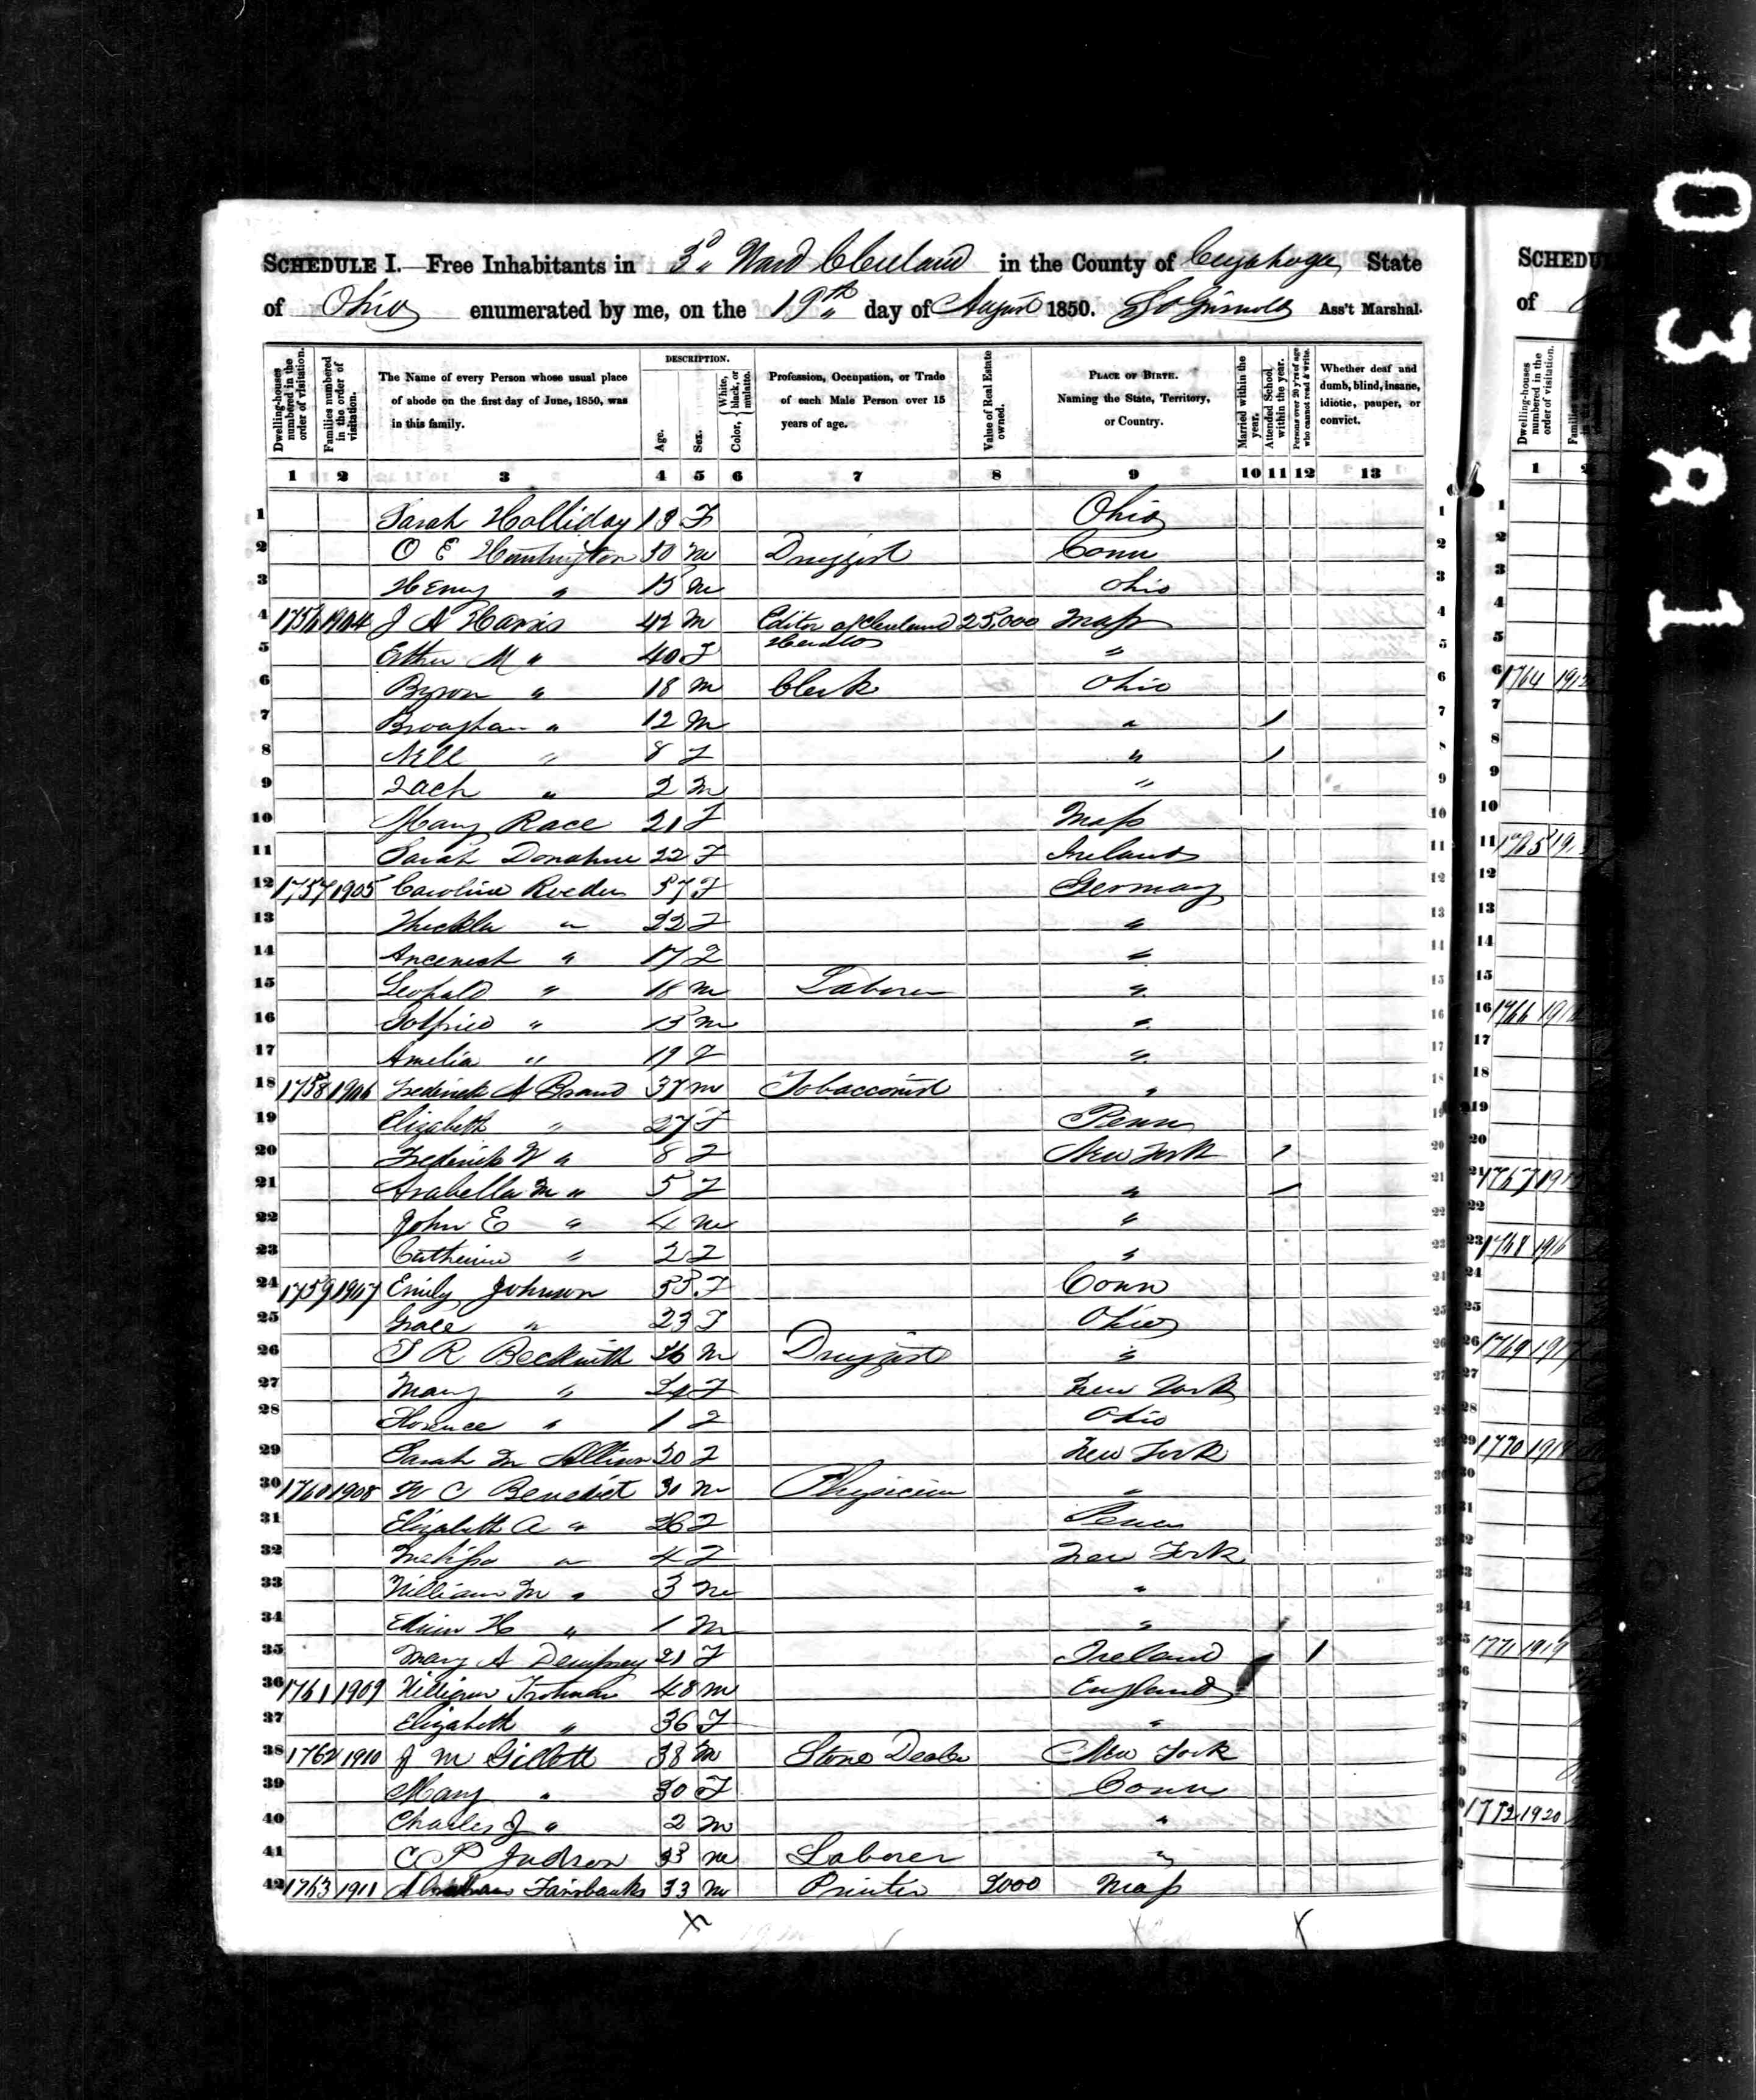 SCHEDULE I.—Free Inhabitants in 3d Ward Cleveland in the County of Cuyahoga State
of Ohio enumerated by me, on the 19th day of August 1850. Ass't Marshal.
Dwelling-houses numbered in the order of visitation.
Families numbered in the order of visitation.
The Name of every Person whose usual place of abode on the first day of June, 1850, was in this family.
DESCRIPTION.
Age.
Sex.
Color, { White, black, or mulatto.
Profession, Occupation, or Trade of each Male Person over 15 years of age.
Value of Real Estate owned.
PLACE OF BIRTH. Naming the State, Territory, or Country.
Married within the year.
Attended School within the year.
Persons over 20 y'rs of age who cannot read & write.
Whether deaf and dumb, blind, insane, idiotic, pauper, or convict.
1 2 3 4 5 6 7 8 9 10 11 12 13
1 Sarah Holliday 19 F Ohio 1
2 O E Huntington 50 M Druggist Conn 2
3 Henry " 15 M Ohio 3
4 1756 1904 J A Harris 42 M Editor of Cleveland 25,000 Mass 4
5 Esther M " 40 F Herald " 5
6 Byron " 18 M Clerk Ohio 6
7 Brougham " 12 M " / 7
8 Nell " 8 F " / 8
9 Zach " 2 M " 9
10 Mary Race 21 F Mass 10
11 Sarah Donahue 22 F Ireland 11
12 1757 1905 Caroline Roeder 57 F Germany 12
13 Theckla " 22 F " 13
14 " 17 F " 14
15 Leopald " 18 M Laborer " 15
16 Gotfried " 13 M " 16
17 Amelia " 19 F " 17
18 1758 1906 Frederick A Brand 37 M Tobacconist " 18
19 Elizabeth " 27 F Penn 19
20 Frederick W " 8 F New York / 20
21 Arabella M " 5 F " / 21
22 John E " 4 M " 22
23 Catherine " 2 F " 23
24 1759 1907 Emily Johnson 53 F Conn 24
25 Grace " 23 F Ohio 25
26 T R Beckwith 26 M Druggist " 26
27 Mary " 24 F New York 27
28 Florence " 1 F Ohio 28
29 Sarah M Allison 20 F New York 29
30 1760 1908 W C Benedict 30 M Physician " 30
31 Elizabeth A " 26 F Penn 31
32 Melissa " 4 F New York 32
33 William M " 3 M " 33
34 Edwin H " 1 M " 34
35 Mary A Dempsey 21 F Ireland / 35
36 1761 1909 William Trotman 48 M England 36
37 Elizabeth " 36 F " 37
38 1762 1910 J M Gillett 38 M Stone Dealer New York 38
39 Mary " 30 F Conn 39
40 Charles J " 2 M " 40
41 C P Judson 33 M Laborer " 41
42 1763 1911 Fairbanks 33 M Printer 2000 Mass
SCHEDU
of
Dwelling-houses numbered in the order of visitation.
Families
1 2
1
2
3
4
5
6 1764
7
8
9
10
11 1765
12
13
14
15
16 1766
17
18
19
20
21 1767
22
23 1768 1916
24
25
26 1769 1917
27
28
29 1770
1771 1919
1772 1920
03R1